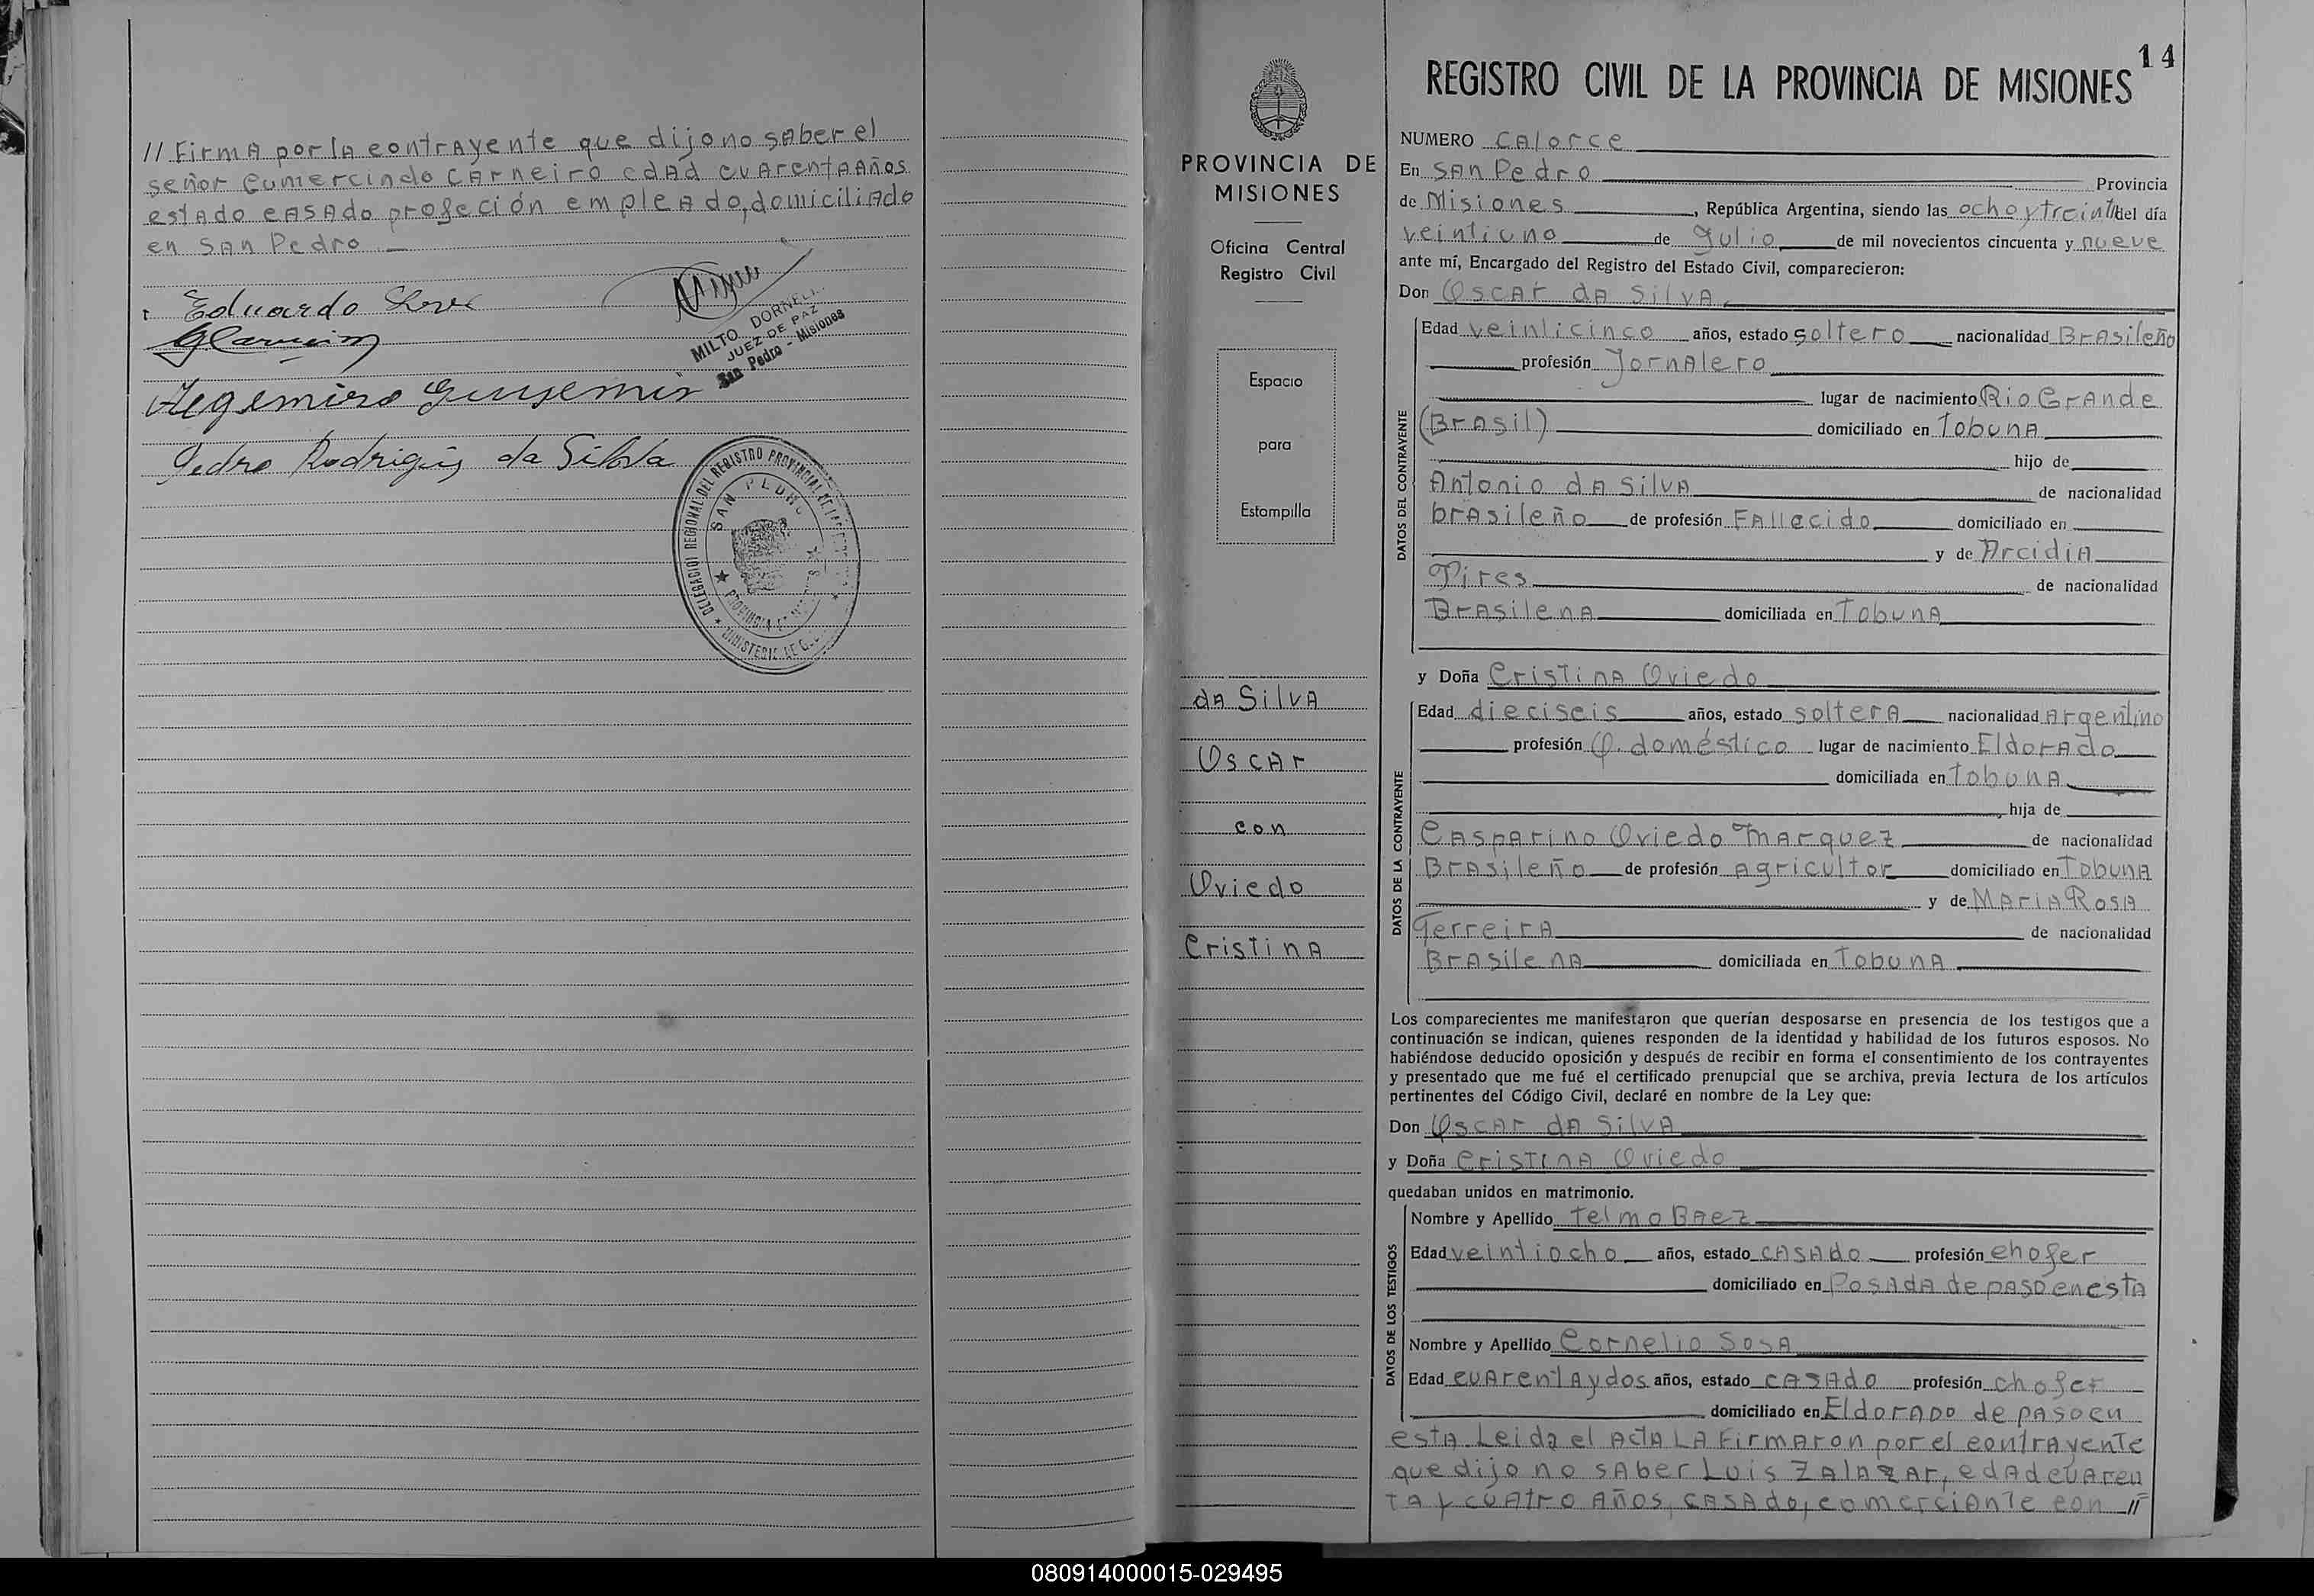 // Firma por la contrayente que dijo no saber el
señor Gumercindo Carneiro edad cuarenta años
estado casado profeción empleado, domiciliado
en San Pedro
Eduardo
MILTO DORNEL
JUEZ DE PAZ
San Pedro - Misiones
Pedro Rodrigues da Silva
DELEGACION REGIONAL DEL REGISTRO PROVINCIAL DE LAS
SAN PEDRO
PROVINCIA DE MISIONES
MINISTERIO DE
PROVINCIA DE
MISIONES
Oficina Central
Registro Civil
Espacio
para
Estampilla
da Silva
Oscar
con
Oviedo
Cristina
14
REGISTRO CIVIL DE LA PROVINCIA DE MISIONES
NUMERO Catorce
En San Pedro Provincia
de Misiones, República Argentina, siendo las ocho y treinta del día
veintiuno de Julio de mil novecientos cincuenta y nueve
ante mí, Encargado del Registro del Estado Civil, comparecieron:
Don Oscar da Silva
DATOS DEL CONTRAYENTE
Edad veinticinco años, estado soltero nacionalidad Brasileño
profesión Jornalero
lugar de nacimiento Rio Grande
(Brasil) domiciliado en Tobuna
hijo de
Antonio da Silva de nacionalidad
brasileño de profesión Fallecido domiciliado en
y de Arcidia
Pires de nacionalidad
Brasilena domiciliada en Tobuna
y Doña Cristina Oviedo
DATOS DE LA CONTRAYENTE
Edad dieciseis años, estado soltera nacionalidad Argentino
profesión Q. doméstico lugar de nacimiento Eldorado
domiciliada en Tobuna
hija de
Casparino Oviedo Marquez de nacionalidad
Brasileño de profesión agricultor domiciliado en Tobuna
y de Maria Rosa
Ferreira de nacionalidad
Brasilena domiciliada en Tobuna
Los comparecientes me manifestaron que querían desposarse en presencia de los testigos que a
continuación se indican, quienes responden de la identidad y habilidad de los futuros esposos. No
habiéndose deducido oposición y después de recibir en forma el consentimiento de los contrayentes
y presentado que me fué el certificado prenupcial que se archiva, previa lectura de los artículos
pertinentes del Código Civil, declaré en nombre de la Ley que:
Don Oscar da Silva
y Doña Cristina Oviedo
quedaban unidos en matrimonio.
DATOS DE LOS TESTIGOS
Nombre y Apellido Telmo Baez
Edad veintiocho años, estado casado profesión chofer
domiciliado en Posada de paso en esta
Nombre y Apellido Cornelio Sosa
Edad cuarenta y dos años, estado casado profesión chofer
domiciliado en Eldorado de paso en
esta. Leida el acta la Firmaron por el contrayente
que dijo no saber Luis Zalazar, edad cuaren
ta y cuatro años, casado, comerciante con //
080914000015-029495